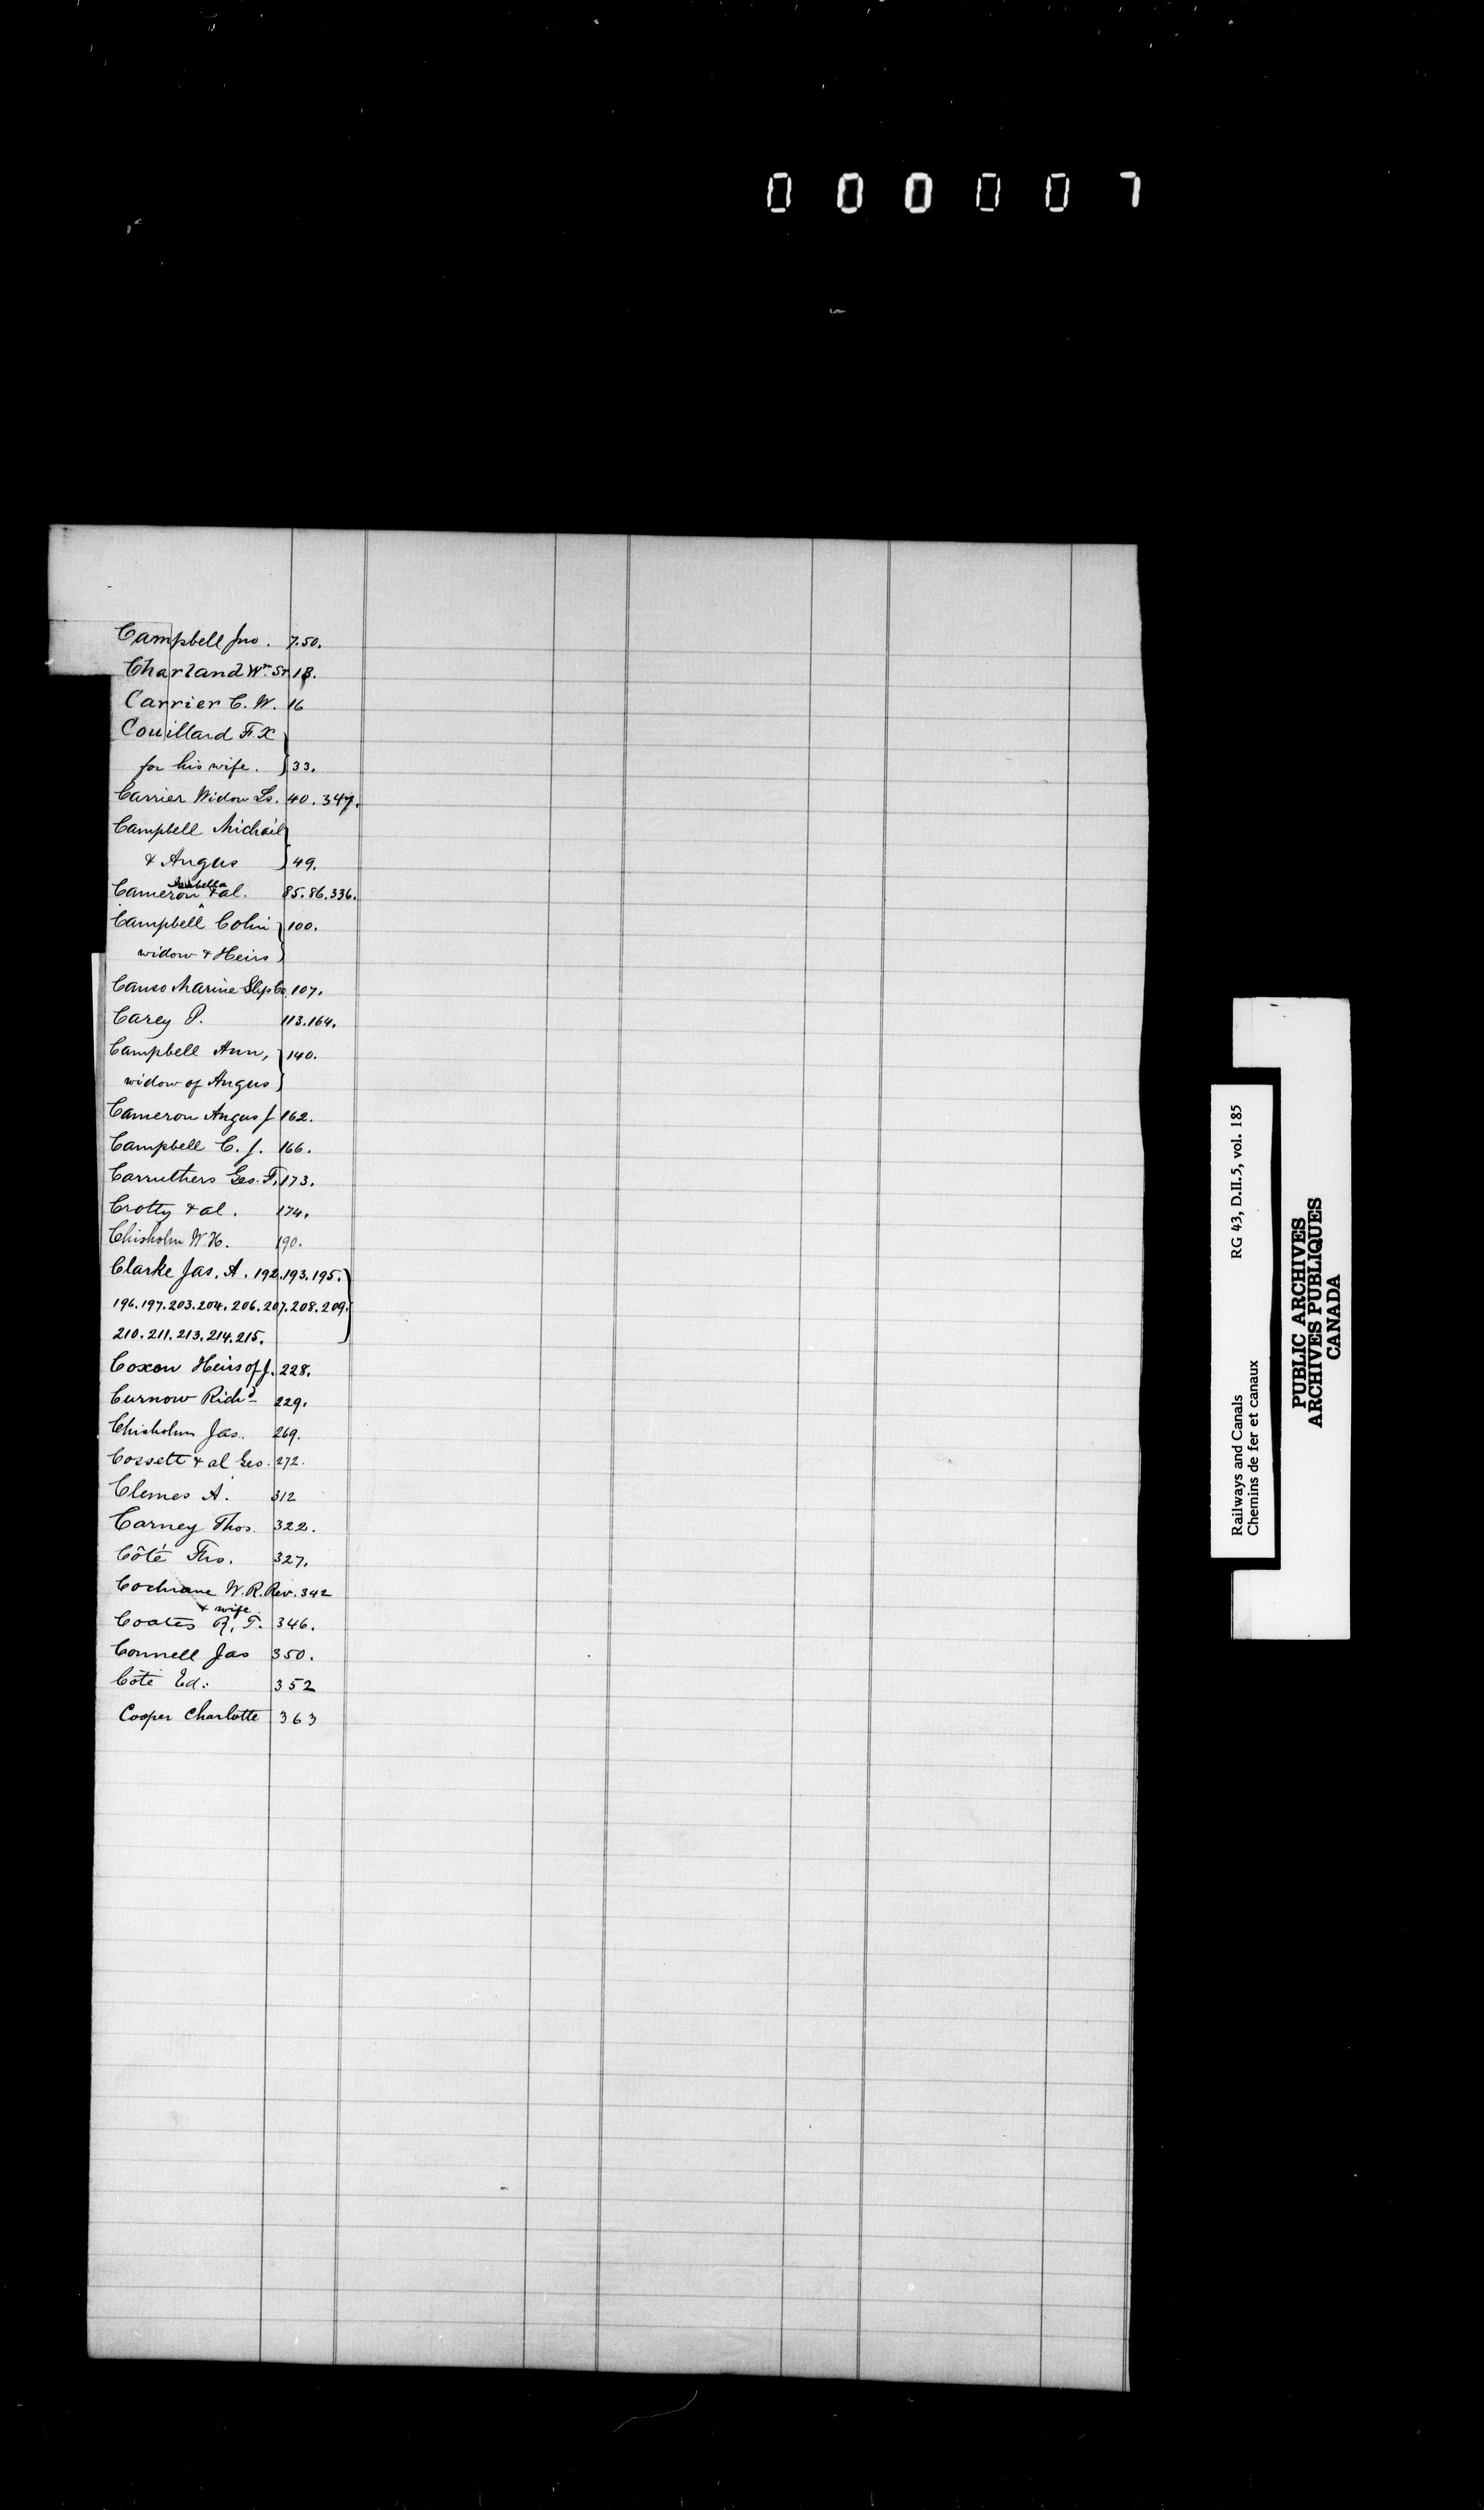 000007
Campbell Jno. 7.50.
Charland Wm. Sr 18.
Carrier C. W. 16
Couillard F. X
for his wife. } 33.
Carrier Widow Ls. 40. 347.
Campbell Michael
& Angus } 49.
Isabella
Cameron ^ & al. 85. 86. 336.
Campbell Colin } 100.
widow & Heirs
Canso Marine Slip Co. 107.
Carey P. 113. 164.
Campbell Ann, } 140.
widow of Angus
Cameron Angus J 162.
Campbell C. J. 166.
Carruthers Geo. F. 173.
Crotty & al. 174.
Chisholm W. H. 190.
Clarke Jas. A. 192. 193. 195.
196. 197. 203. 204. 206. 207. 208. 209.
210. 211. 213. 214. 215.
Coxon Heirs of J. 228.
Curnow Richd 229.
Chisholm Jas. 269.
Cossett & al Geo. 272.
Clemes A. 312
Carney Thos. 322.
Côté Frs. 327.
Cochrane W. R. Rev. 342
& wife
Coates R. T. 346.
Connell Jas 350.
Côté Ed: 352
Cooper Charlotte 363
Railways and Canals RG 43, D.II.5, vol. 185
Chemins de fer et canaux
PUBLIC ARCHIVES
ARCHIVES PUBLIQUES
CANADA